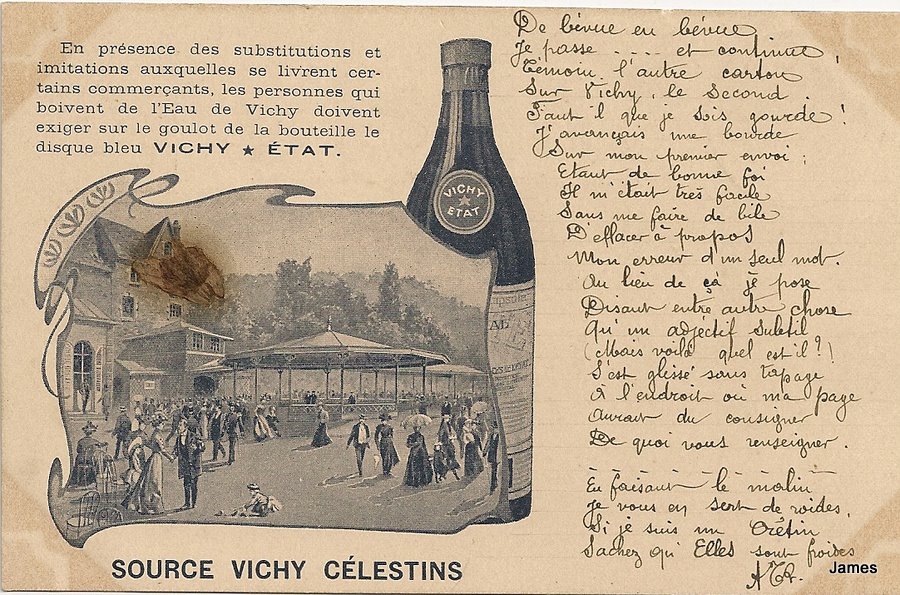 En présence des substitutions et
imitations auxquelles se livrent cer-
tains commerçants, les personnes qui
boivent de l'Eau de Vichy doivent
exiger sur le goulot de la bouteille le
disque bleu VICHY ★ ÉTAT.
VICHY
★
ÉTAT
SOURCE VICHY CÉLESTINS
De bévue en bévue
Je passe .... et continue !
Témoin l'autre carton
Sur Vichy, le second.
Faut il que je sois gourde !
J'avançais une bourde
Sur mon premier envoi ;
Etant de bonne foi
Il m'était très facile
Sans me faire de bile
D'effacer à propos
Mon erreur d'un seul mot.
Au lieu de çà je pose
Disant entre autre chose
Qu'un adjectif subtil
(Mais voilà quel est il ?)
S'est glissé sans tapage
A l'endroit où ma page
Aurait du consigner
De quoi vous renseigner.
En faisant le malin
Je vous en sert de roides,
Si je suis un Crétin
Sachez qu'Elles sont froides
James